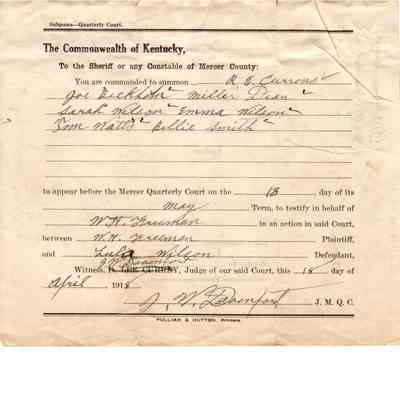 Subpœna—Quarterly Court.
The Commonwealth of Kentucky,
To the Sheriff or any Constable of Mercer County:
You are commanded to summon R. E. Currens
Joe Eickhorn Miller Dean
Sarah Wilson Emma Wilson
Tom Watts Billie Smith
to appear before the Mercer Quarterly Court on the 13 day of its
May Term, to testify in behalf of
W. H. Freeman in an action in said Court,
between W. H. Freeman Plaintiff,
and Lula Wilson Defendant,
J W Davenport
Witness, D. LEE CURRY, Judge of our said Court, this 18 day of
April 1918
J. W. Davenport J. M. Q. C.
PULLIAM & HUTTON, Printers.